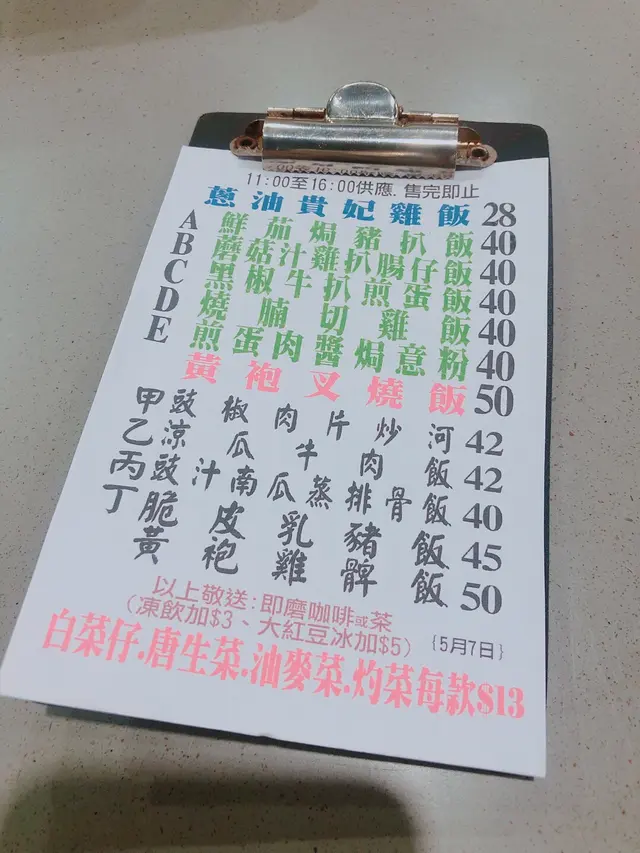 11:00至16:00供應. 售完即止
蔥油貴妃雞飯 28
A 鮮茄焗豬扒飯 40
B 蘑菇汁雞扒腸仔飯 40
C 黑椒牛扒煎蛋飯 40
D 燒腩切雞飯 40
E 煎蛋肉醬焗意粉 40
黃袍叉燒飯 50
甲 豉椒肉片炒河 42
乙 涼瓜牛肉飯 42
丙 豉汁南瓜蒸排骨飯 40
丁 脆皮乳豬飯 45
黃袍雞髀飯 50
以上敬送:即磨咖啡或茶
(凍飲加$3、大紅豆冰加$5) {5月7日}
白菜仔.唐生菜.油麥菜.灼菜每款$13